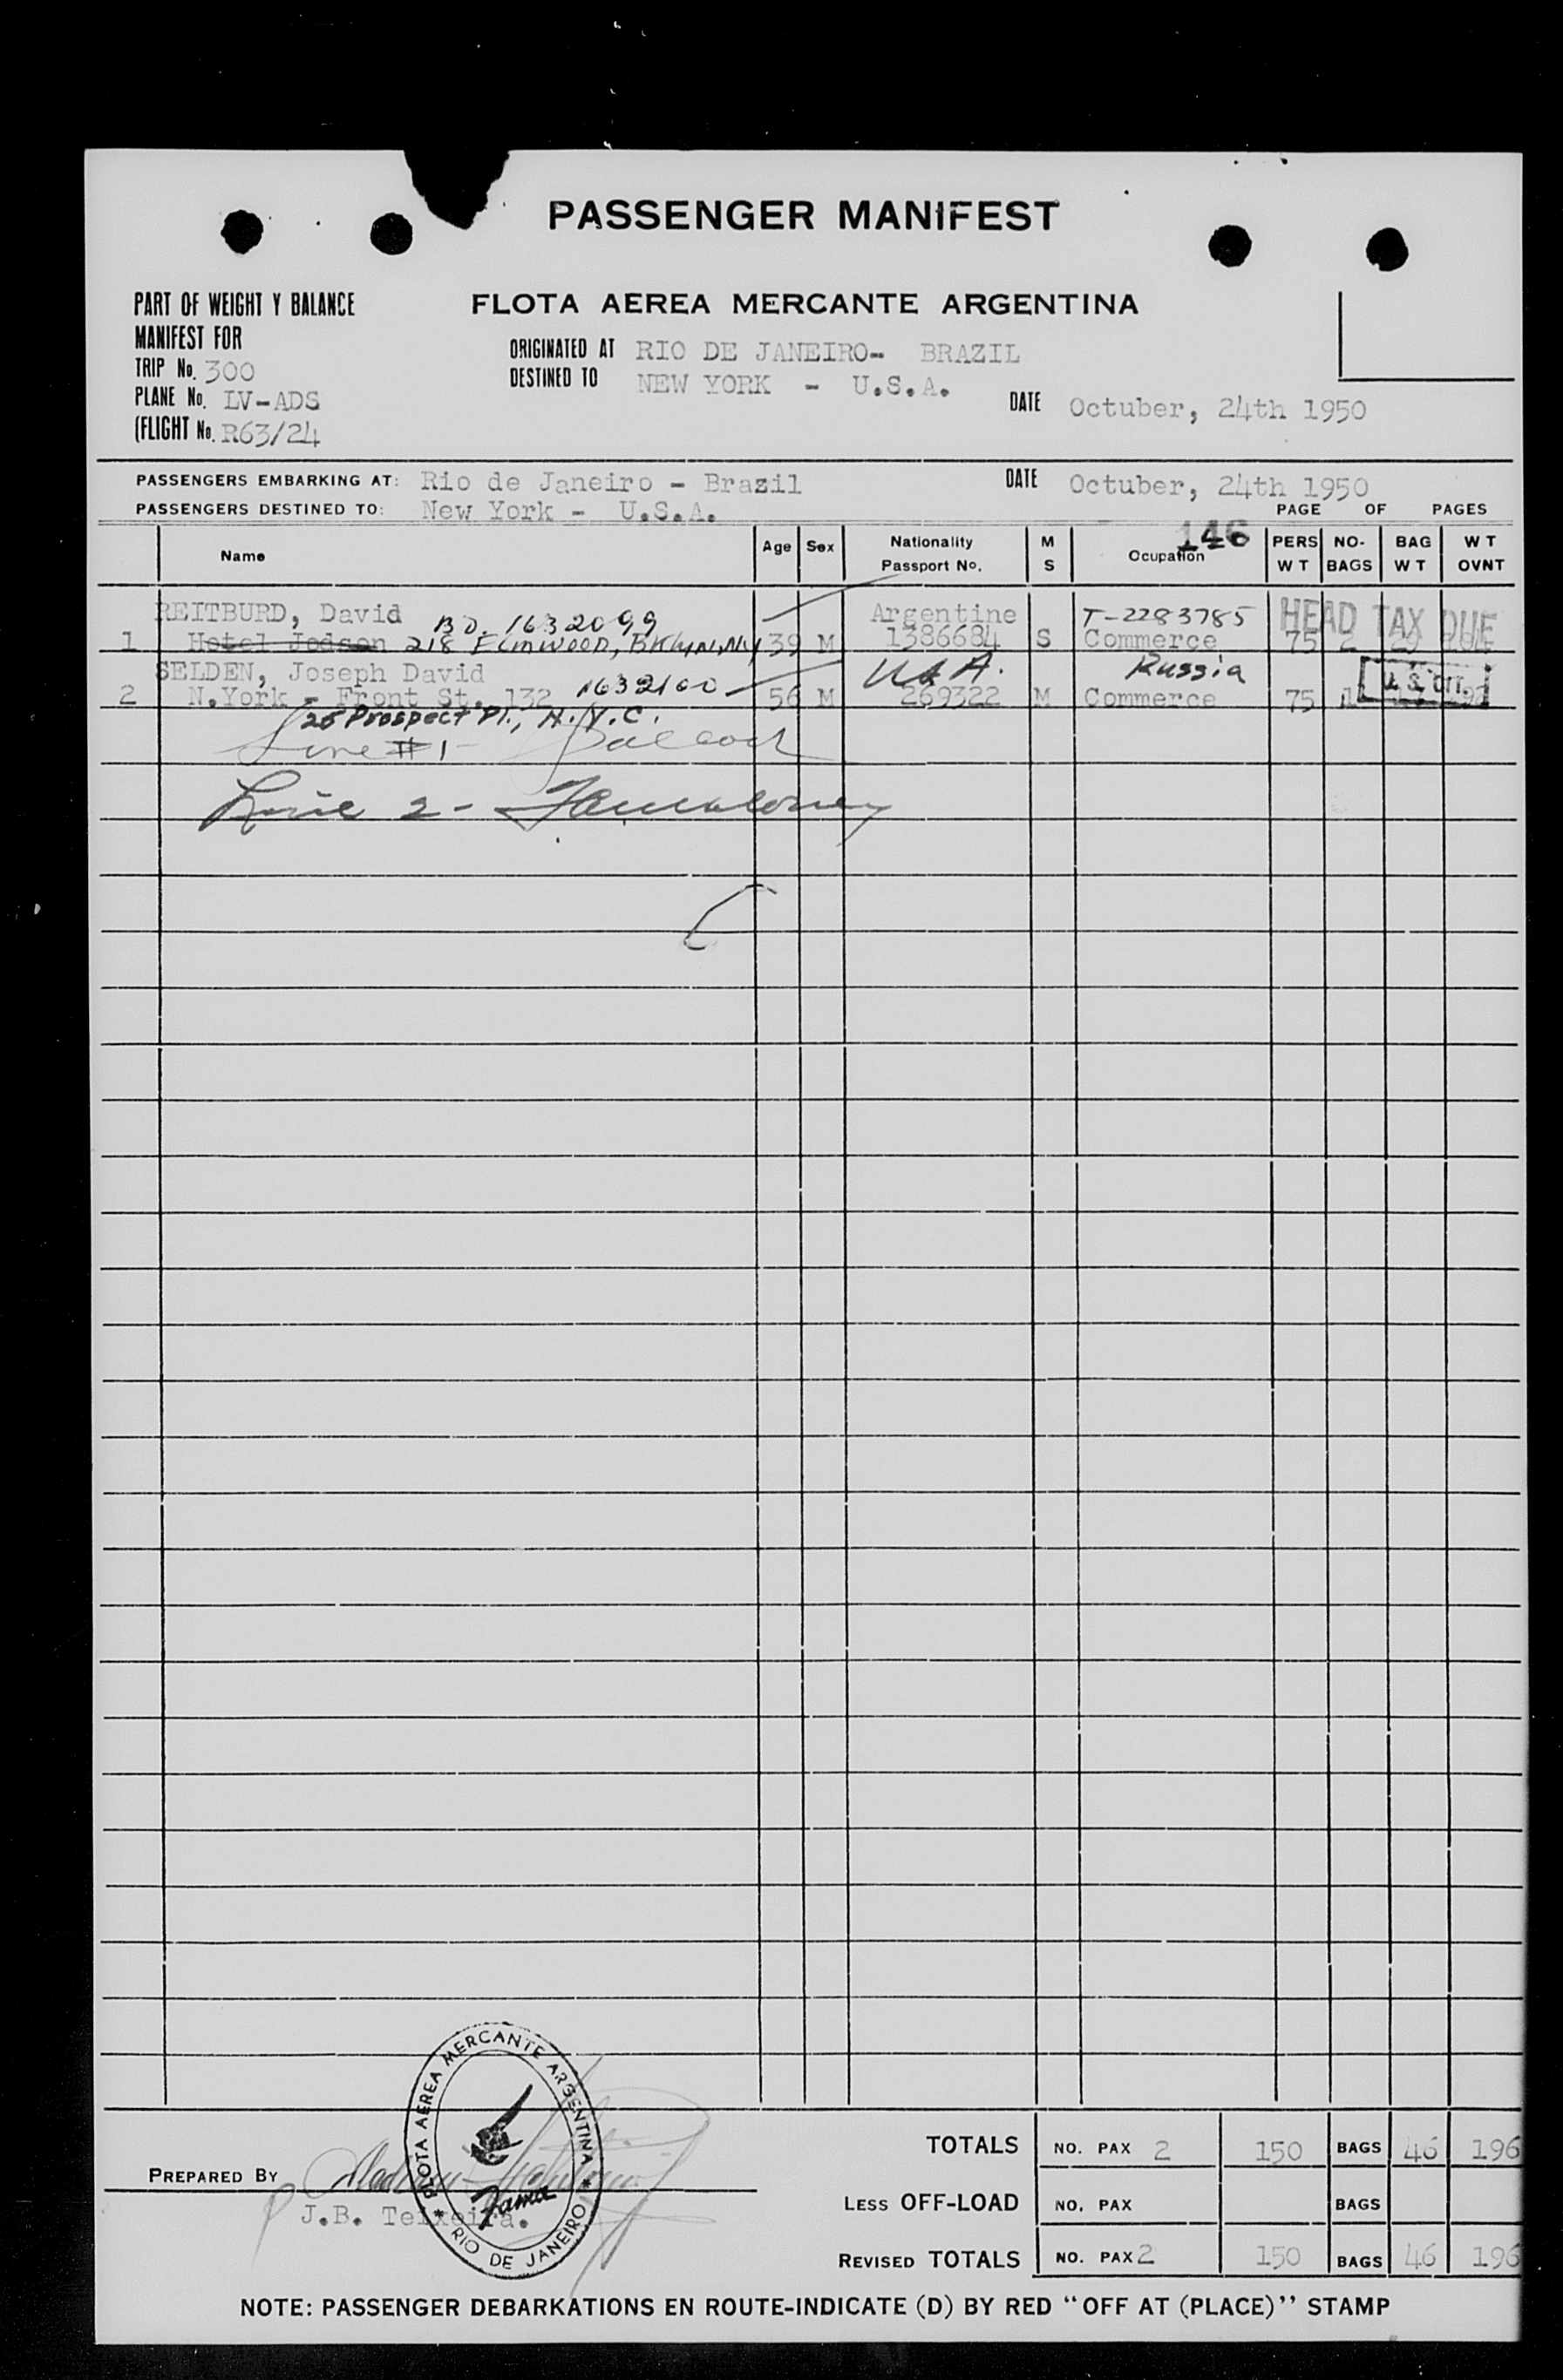 PASSENGER MANIFEST
PART OF WEIGHT Y BALANCE
MANIFEST FOR
TRIP No. 300
PLANE No. LV-ADS
(FLIGHT No. R63/24
FLOTA AEREA MERCANTE ARGENTINA
ORIGINATED AT RIO DE JANEIRO- BRAZIL
DESTINED TO NEW YORK - U.S.A.
DATE Octuber, 24th 1950
PASSENGERS EMBARKING AT: Rio de Janeiro - Brazil DATE Octuber, 24th 1950
PASSENGERS DESTINED TO: New York - U.S.A. PAGE OF PAGES
146
Name Age Sex Nationality Passport No. M S Ocupation PERS WT NO- BAGS BAG WT WT OVNT
REITBURD, David BD. 1632099 Argentine T-2283785 HEAD TAX DUE
1 Hotel Jodson 218 Elmwood, BKlyn, Ny 39 M 1386684 S Commerce 75 2 29 104
SELDEN, Joseph David USA. Russia
2 N.York - Front St. 132 1632100 56 M 269322 M Commerce 75 1 U.S. CIT.
25 Prospect Pl., N.Y.C.
Line #1-
Line 2-
PREPARED BY
J.B. Teixeira.
FLOTA AEREA MERCANTE ARGENTINA
Fama
* RIO DE JANEIRO *
TOTALS NO. PAX 2 150 BAGS 46 196
LESS OFF-LOAD NO. PAX BAGS
REVISED TOTALS NO. PAX 2 150 BAGS 46 196
NOTE: PASSENGER DEBARKATIONS EN ROUTE-INDICATE (D) BY RED "OFF AT (PLACE)" STAMP